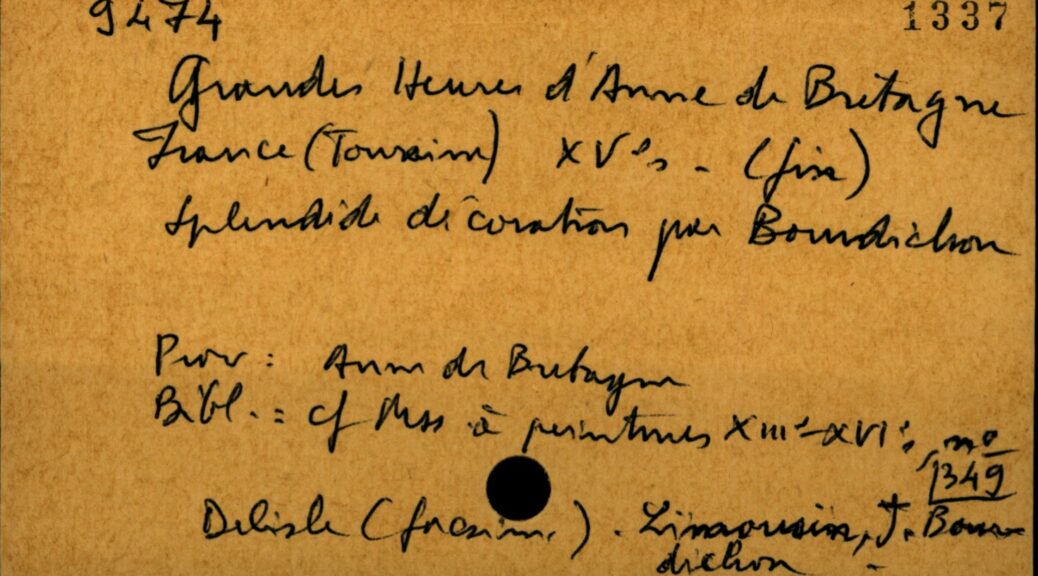 9474 1337
Grandes Heures d'Anne de Bretagne
France (Touraine) XVe s - (fin)
Splendide décoration par Bourdichon
Prov : Anne de Bretagne
Bibl. : cf Mss à peintures XIIIe-XVIe s, no
1349
Delisle (facsim.). Limousin, J. Bour-
dichon -